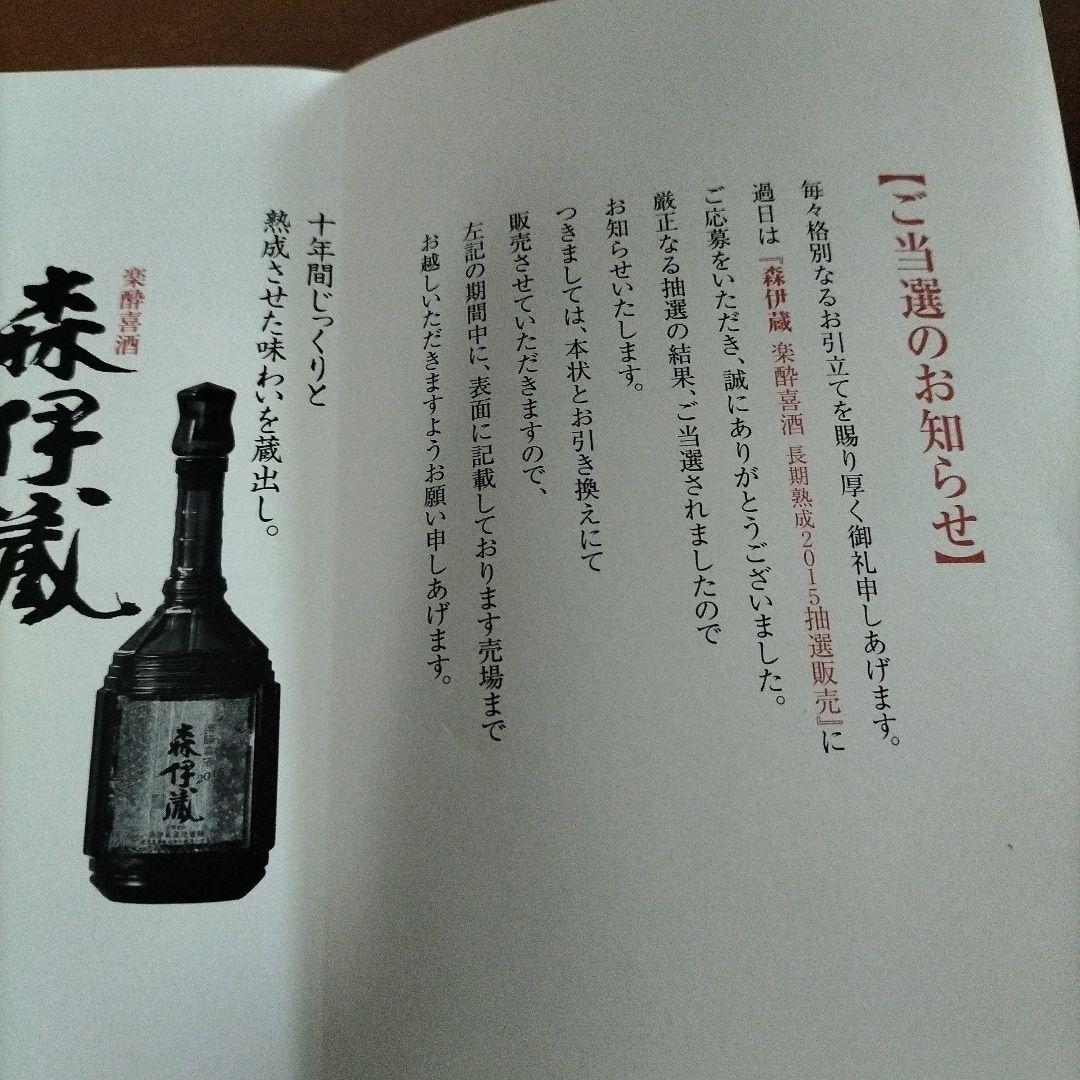 【ご当選のお知らせ】
毎々格別なるお引立てを賜り厚く御礼申しあげます。
過日は『森伊蔵 楽酔喜酒 長期熟成2015抽選販売』に
ご応募をいただき、誠にありがとうございました。
厳正なる抽選の結果、ご当選されましたので
お知らせいたします。
つきましては、本状とお引き換えにて
販売させていただきますので、
左記の期間中に、表面に記載しております売場まで
お越しいただきますようお願い申しあげます。
十年間じっくりと
熟成させた味わいを蔵出し。
楽酔喜酒
森伊蔵
森伊蔵